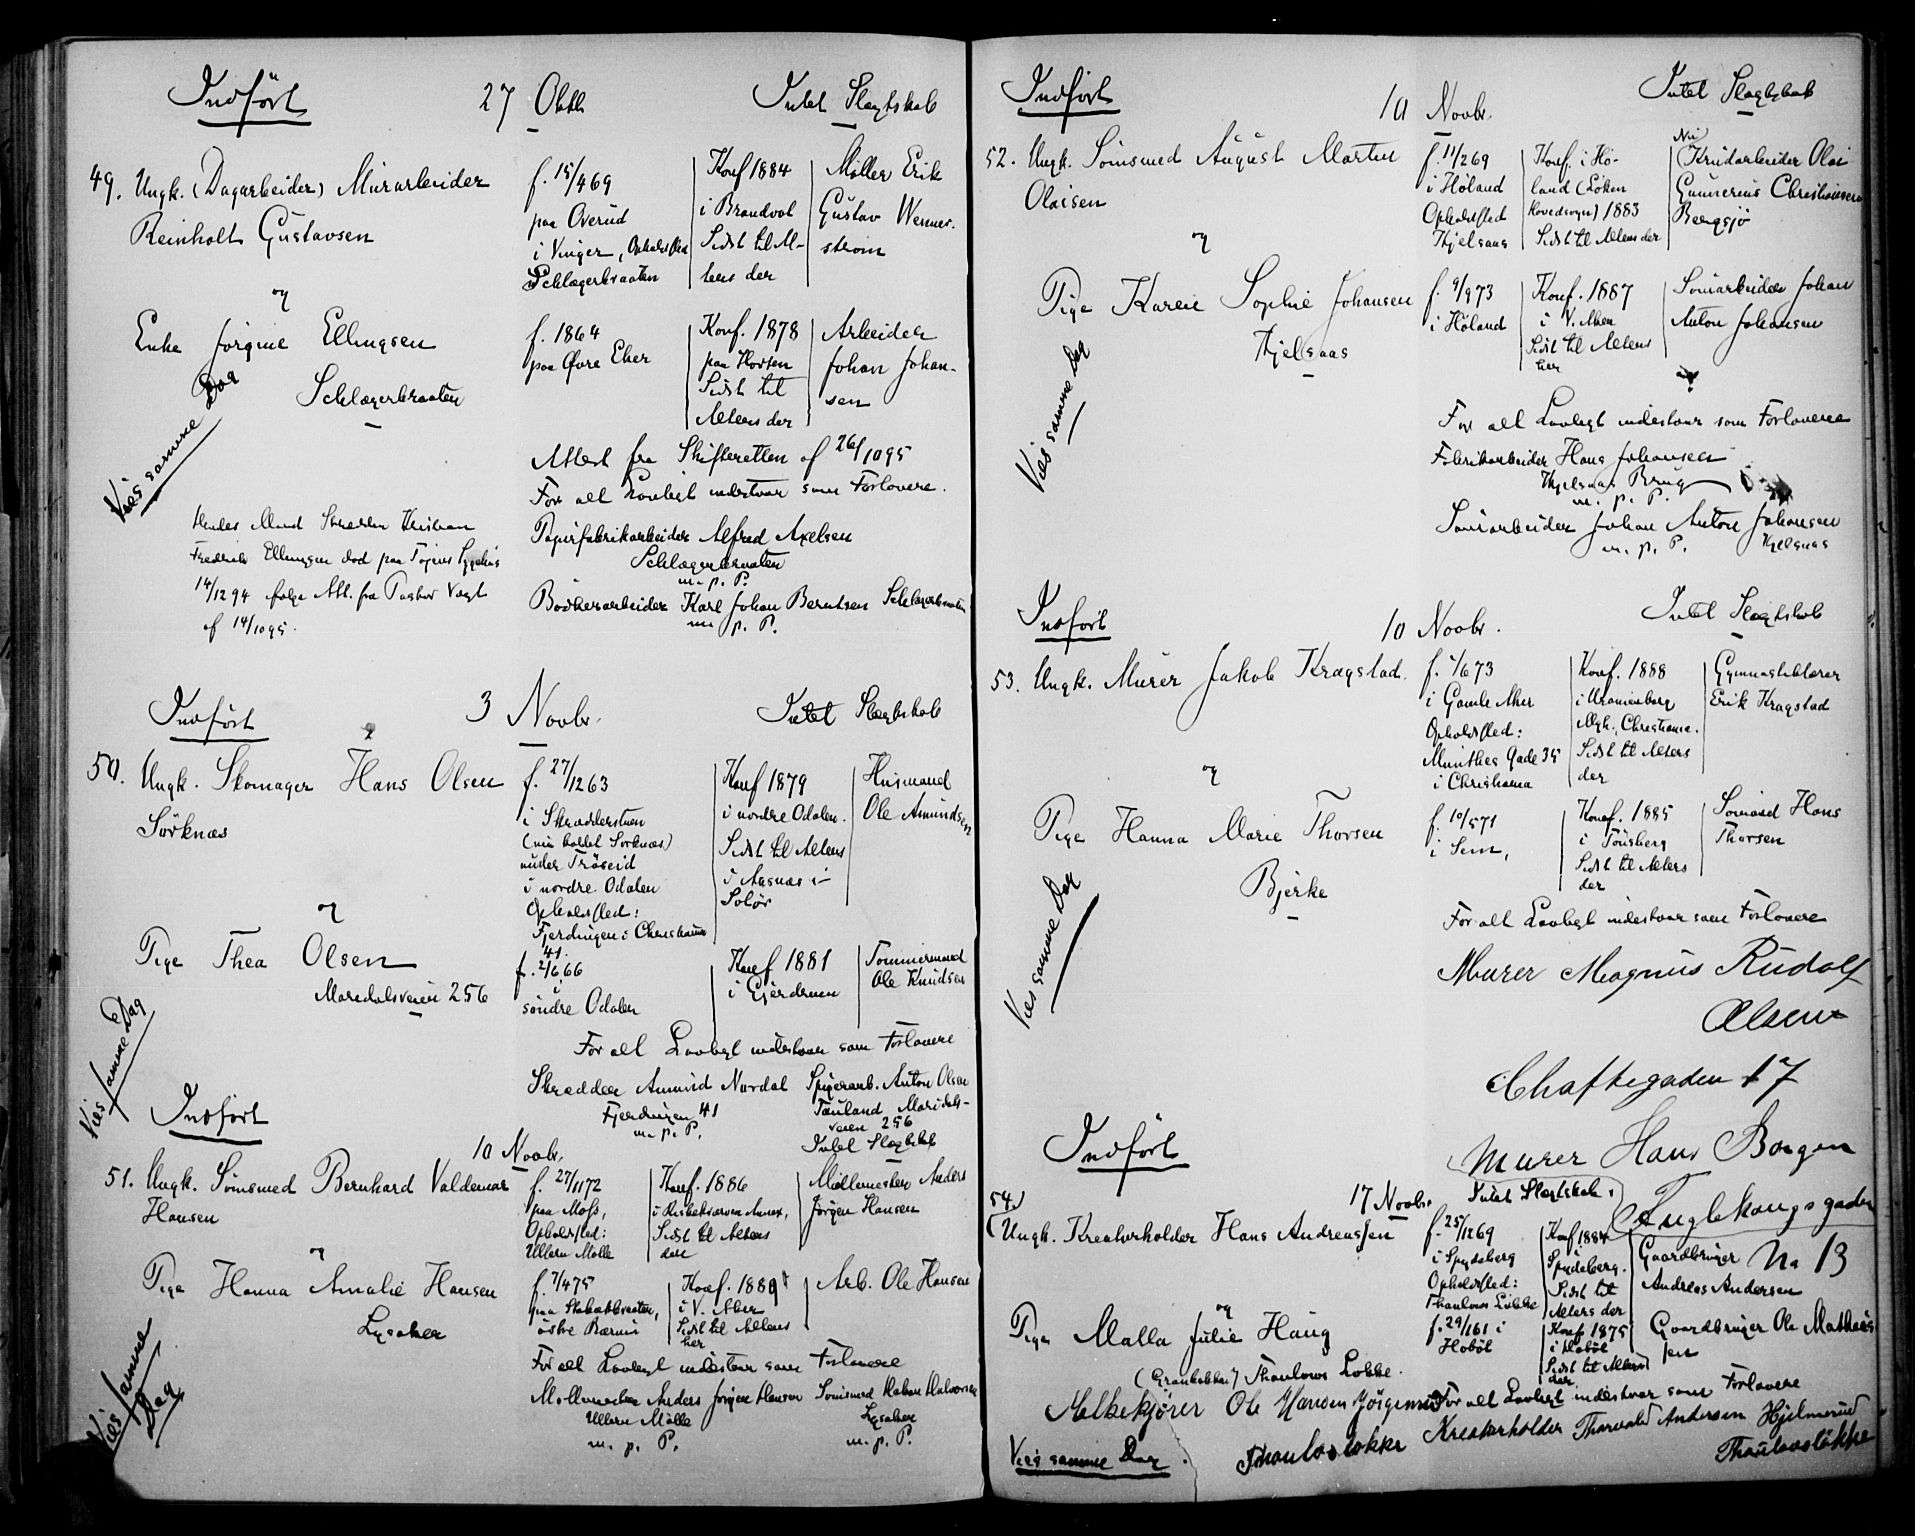 Indført 27 Oktb. Intet Slægtskab
49. Ungk. (Dagarbeider) Murarbeider
Reinholt Gustavsen
f. 15/4 69
paa Overud
i Vinger, Opholdssted
Schlægerbraaten
Konf 1884
i Brandval
Sidst til Al-
ters der
Møller Erik
Gustav Wenner-
strøm
og
Enke Jørgine Ellingsen
Schlægerbraaten
f. 1864
paa Øvre Eker
Konf. 1878
paa Horten
Sidst til
Alters der
Arbeider
Johan Johan-
sen
Vies samme Dag
Attest fra Skifteretten af 26/10 95
For alt Lovligt indestaar som Forlovere.
Papirfabrikarbeider Alfred Axelsen
Schlægerbraaten
m. p. P.
Bødkerarbeider Karl Johan Berntsen Schlægerbraaten
m. p. P.
Hendes Mand Skrædder Kristian
Fredrik Ellingsen død paa Tøiens Sygehus
14/12 94 følge Att. fra Pastor Vogt
af 14/10 95.
Indført 3 Novbr. Intet Slægtskab
50. Ungk. Skomager Hans Olsen
Sörknæs
f. 27/12 63
i Skrædderstuen
(nu kaldet Sörknæs)
under Tröseid
i nordre Odalen
Opholdssted:
Fjerdingen i Christiania
41.
Konf 1879
i nordre Odalen.
Sidst til Alters
i Aasnæs i
Solör
Husmand
Ole Amundsen
og
Pige Thea Olsen
Maridalsveien 256
f. 2/6 66
i
søndre Odalen
Konf 1881
i Gjerdrum
Tømmermand
Ole Knudsen
Vies samme Dag
For alt Lovligt indestaar som Forlovere
Skrædder Amund Nordal Spigerarb. Anton Olsen
Fjerdingen 41
m. p. P.
Tauland Maridals-
veien 256
Indført
10 Novbr. Intet Slægtskab
51. Ungk. Sømsmed Bernhard Valdemar
Hansen
f. 27/11 72
paa Moss,
Opholdssted:
Ullern Mølle
Konf. 1886
Sidst til Alters
der
Møllemester Anders
Jørgen Hansen
og
Pige Hanna Amalie Hansen
Lysaker
f. 7/4 75
østre Bærum
i V. Aker
Sidst til Alters
her
Arb. Ole Hansen
Vies samme
Dag
For alt Lovligt indestaar som Forlovere
Møllemester Anders Jørgen Hansen Sømsmed Halvorsen
Ullern Mølle
m. p. P.
Lysaker
m. p. P.
Indført 10 Novbr. Intet Slægtskab
52. Ungk. Sømsmed August Martin
Olaisen
f. 11/2 69
i Høland
Opholdssted
Kjelsaas
Konf. i Hø-
land (Løken
Hovedsogn) 1883
Sidst til Alters der
Nu
(Krudarbeider Olai
Gunnerius Christiansen
Bergsjø
og
Pige Karen Sophie Johansen
Kjelsaas
f. 9/9 73
i Høland
Konf. 1887
i V. Aker
Sidst til Alters
her
Sømarbeider Johan
Anton Johansen
Vies samme Dag
For alt Lovligt indestaar som Forlovere
Fabrikarbeider Hans Johansen
Kjelsaas Brug
m. p. P.
Sømarbeider Johan Anton Johansen
m. p. P. Kjelsaas
Indført 10 Novbr. Intet Slægtskab
53. Ungk. Murer Jakob Kragstad.
f. 1/6 73
i Gamle Aker
Opholdssted:
Munthes Gade 35
i Christiania
Konf. 1888
i Uranienborg
Mgh., Christiania.
Sidst til Alters
der
Gymnastiklærer
Erik Kragstad
og
Pige Hanna Marie Thorsen
Bjerke
f. 10/5 71
i Sem,
Konf. 1885
i Tönsberg
Sidst til Alters
der
Sömand Hans
Thorsen
Vies samme Dag
For alt Lovligt indestaar som Forlovere
Murer Magnus Rudolf
Olsen
Schaftegaden 17
Murer Hans Borgen
Fuglehaugsgaden
No 13
Indført
17 Novbr. Intet Slægtskab.
54.
Ungk. Kreaturholder Hans Andreassen
f. 25/12 69
i Spydeberg
Opholdssted:
Thaulows Løkke
Konf 1884
Spydeberg.
Sidst til
Alters der
Gaardbruger
Andreas Andersen
og
Pige Malla Julie Haug
(Grønløkken) Thaulows Løkke.
f. 29/1 61 i
Hobøl
Konf 1875
i Hobøl
Sidst til Alters
der
Gaardbruger Ole Mathias-
sen
For alt Lovligt indestaar som Forlovere
Melkekjører Ole Hansen Jörgenrud
Thaulowløkke
Kreaturholder Thorvald Andersen Hjelmerud
Thaulowsløkke
Vies samme Dag.